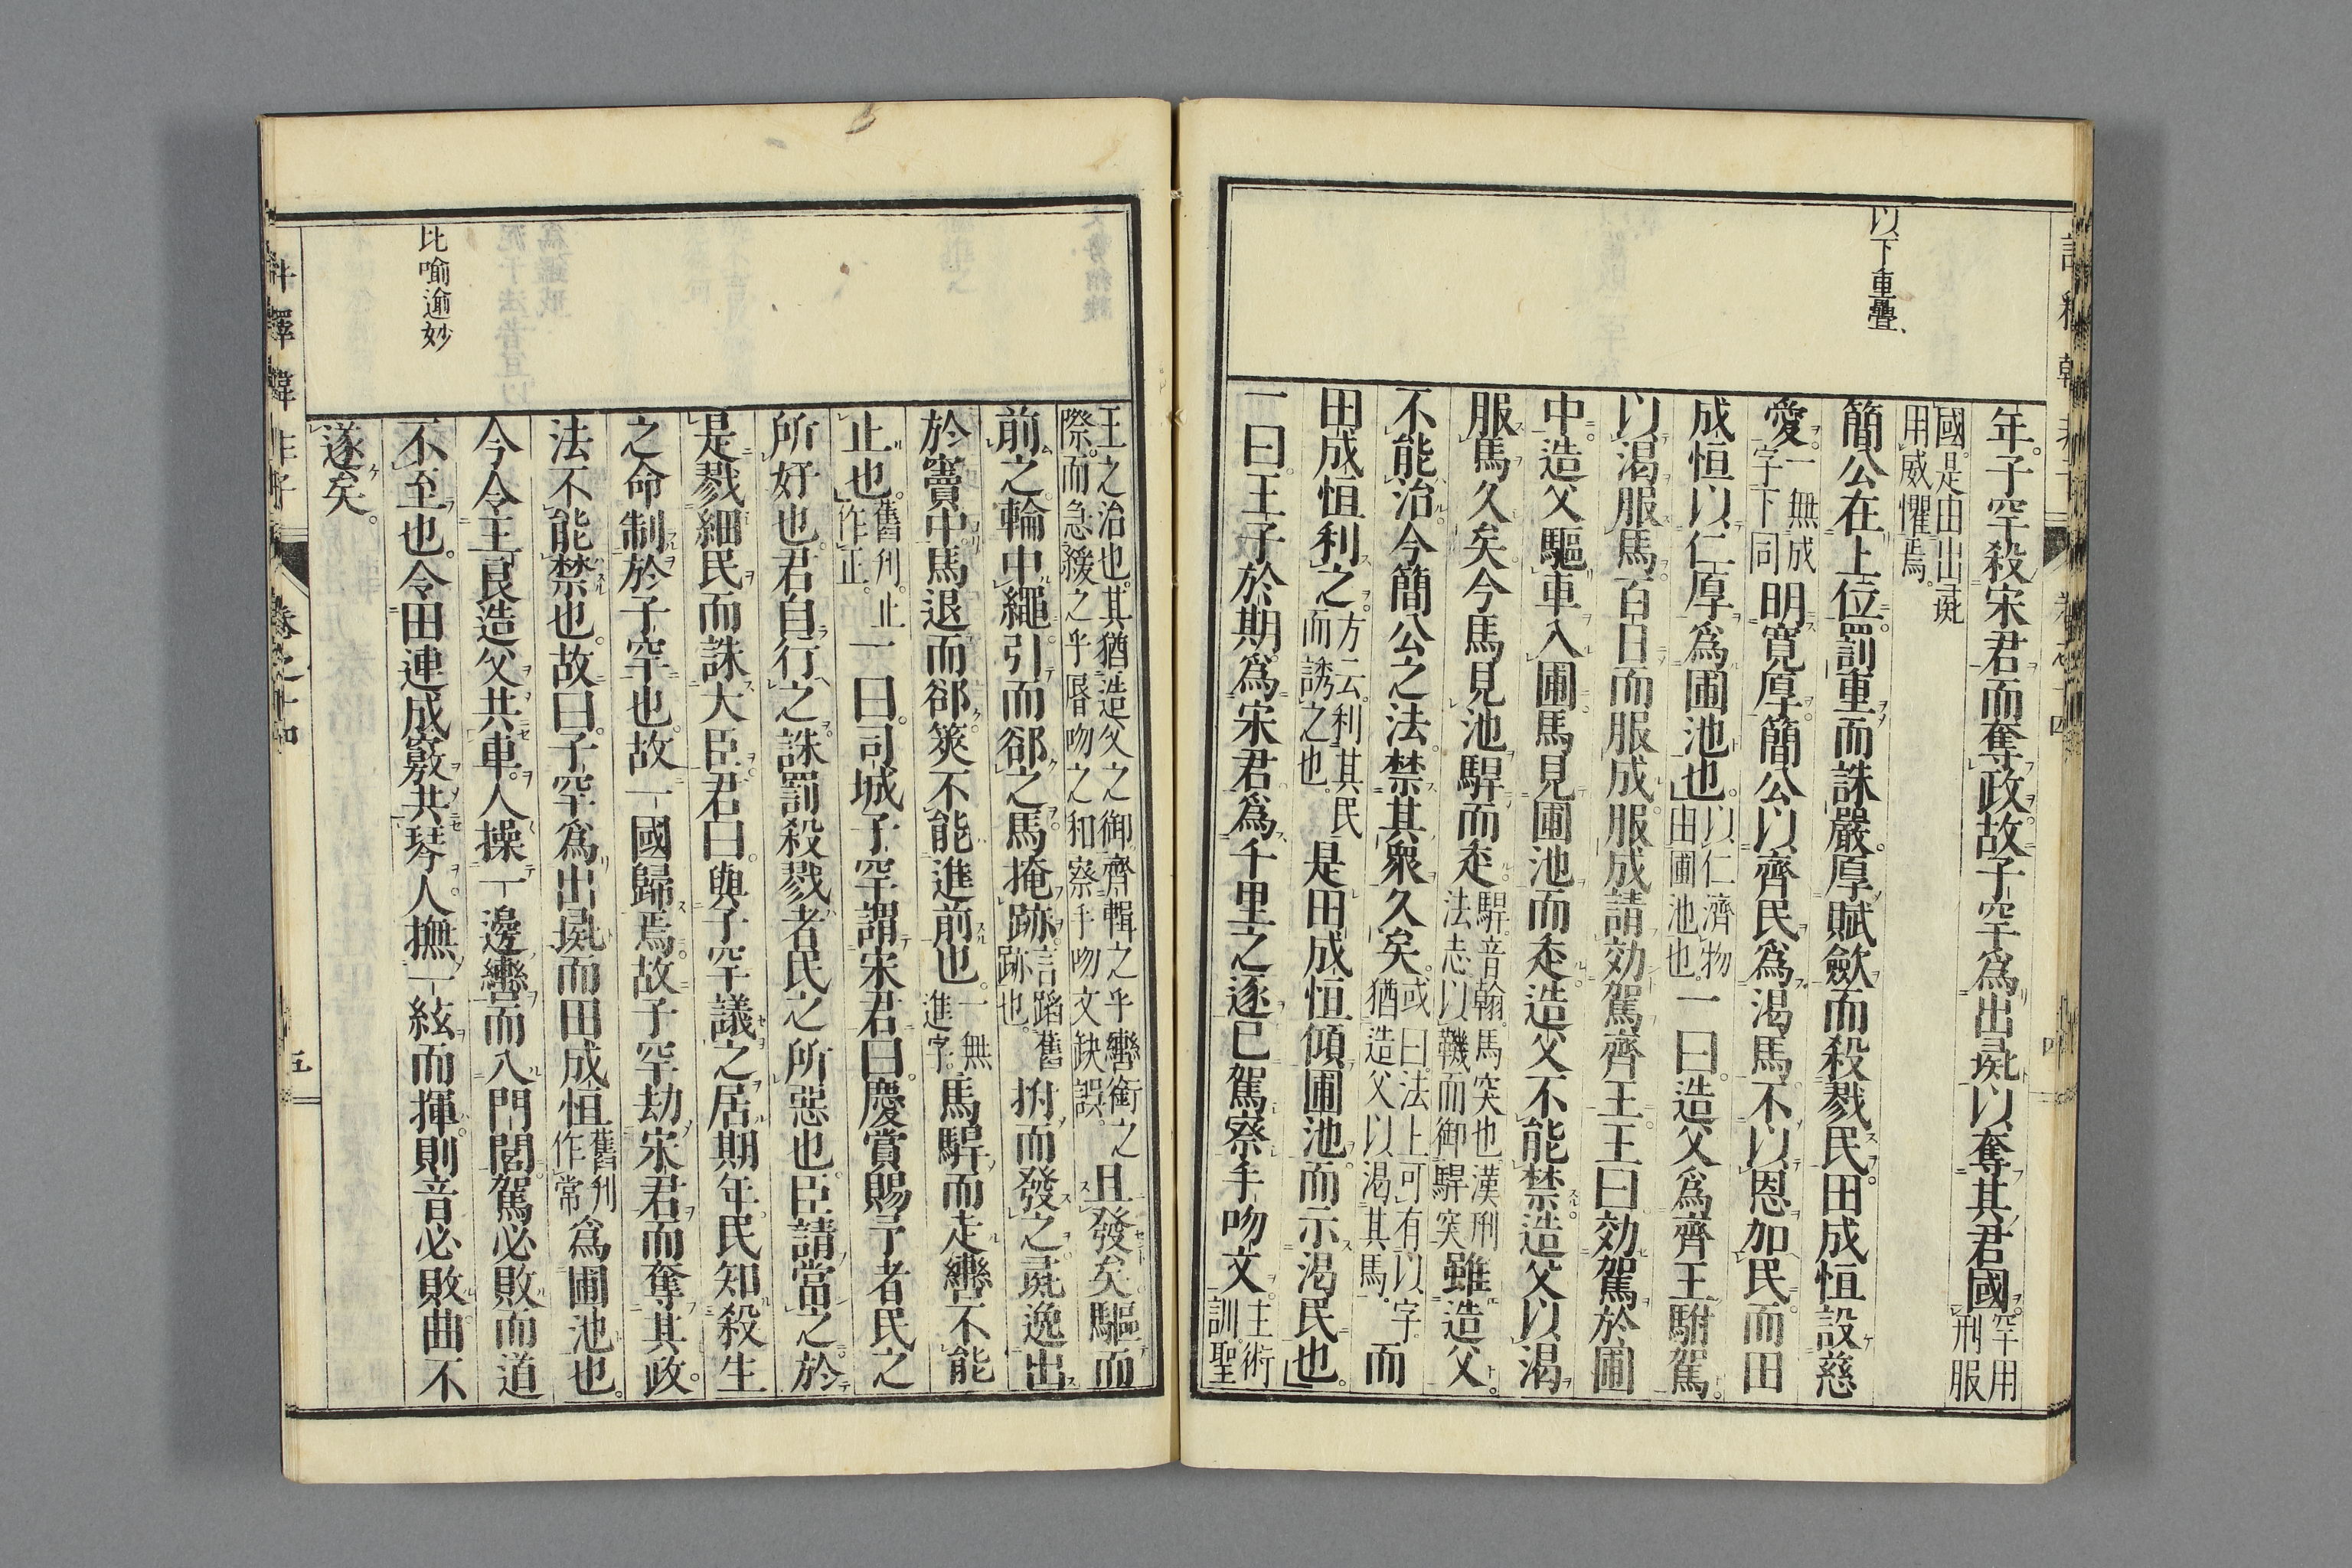 以下重疊
年。子罕殺宋君而奪政。故子罕爲出彘以奪其君國。罕用刑服
國。是由出彘用威懼焉。
簡公在上位。罰重而誅嚴。厚賦歛而殺戮民。田成恒設慈
愛。一無成字下同明寬厚。簡公以齊民爲渴馬。不以恩加民。而田
成恒以仁厚爲圃池也。以仁濟物由圃池也。一曰。造父爲齊王駙駕。
以渴服馬。百日而服成。服成請効駕齊王。王曰。効駕於圃
中。造父驅車入圃。馬見圃池而走。造父不能禁。造父以渴
服馬久矣。今馬見池。駻而走。駻。音翰。馬突也。漢刑法志。以鞿而御駻突雖造父
不能治。今簡公之法。禁其衆久矣。或曰。法上可有以字。猶造父以渴其馬。而
田成恒利之。方云。利其民而誘之也。是田成恒傾圃池。而示渴民也。
一曰。王子於期爲宋君爲千里之逐。已駕。察手吻文。主術訓。聖
王之治也。其猶造父之御。齊輯之乎轡銜之際。而急緩之乎脣吻之和。察手吻文缺誤。且發矣。驅而
前之。輪中繩。引而郤之。馬掩跡。言蹈舊跡也。拊而發之。彘逸出
於竇中。馬退而郤。筴不能進前也。一無進字。馬駻而走。轡不能
止也。舊刋。止作正。一曰。司城子罕謂宋君曰。慶賞賜予者。民之
所好也。君自行之。誅罰殺戮者。民之所惡也。臣請當之。於
是戮細民而誅大臣。君曰。與子罕議之。居期年。民知殺生
之命制於子罕也。故一國歸焉。故子罕劫宋君而奪其政。
法不能禁也。故曰。子罕爲出彘。而田成恒舊刋作常爲圃池也。
今令王良造父共車。人操一邊轡而入門閭。駕必敗而道
不至也。令田連成竅共琴。人撫一絃而揮。則音必敗曲不
遂矣。
比喻逾妙
卷之十四
五